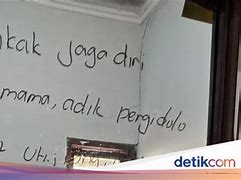 kak jaga diri
mama, adik pergi dulo
detikcom